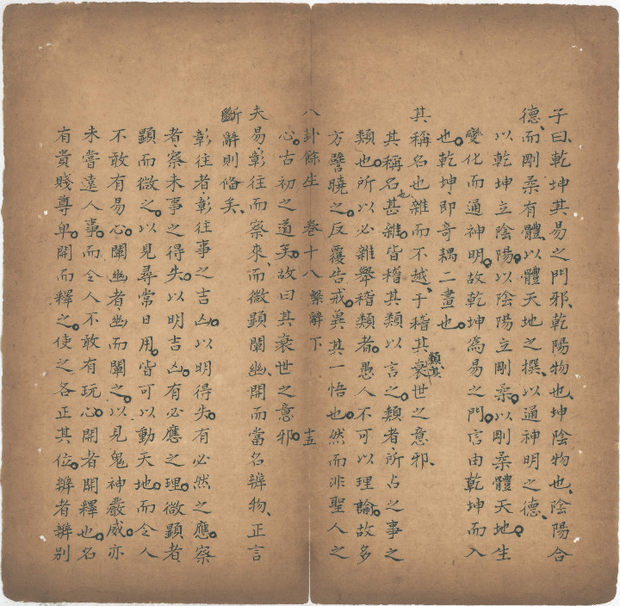 子曰乾坤其易之門邪乾陽物也坤陰物也陰陽合
德而剛柔有體以體天地之撰以通神明之德
以乾坤立陰陽以陰陽立剛柔以剛柔體天地生
變化而通神明故乾坤為易之門言由乾坤而入
也乾坤即奇耦二畫也
其稱名也雜而不越于稽其類其衰世之意邪
其稱名也甚雜皆稽其類以言之類者所占之事之
類也所以必雜舉稽類者愚人不可以理論故多
方譬曉之反覆告戒冀其一悟也然而非聖人之
八卦餘生 卷十八 繫辭下
心古初之道矣故曰其衰世之意邪
夫易彰往而察來而微顯闡幽開而當名辨物正言
斷辭則備矣
彰往者彰往事之吉凶以明得失有必然之應察
者察未事之得失以明吉凶有必應之理微顯者
顯而微之以見尋常日用皆可以動天地而令人
不敢有易心闡幽者幽而闡之以見鬼神嚴威亦
未嘗遠人事而令人不敢有玩心開者開釋也名
有貴賤尊卑開而釋之使之各正其位辨者辨別